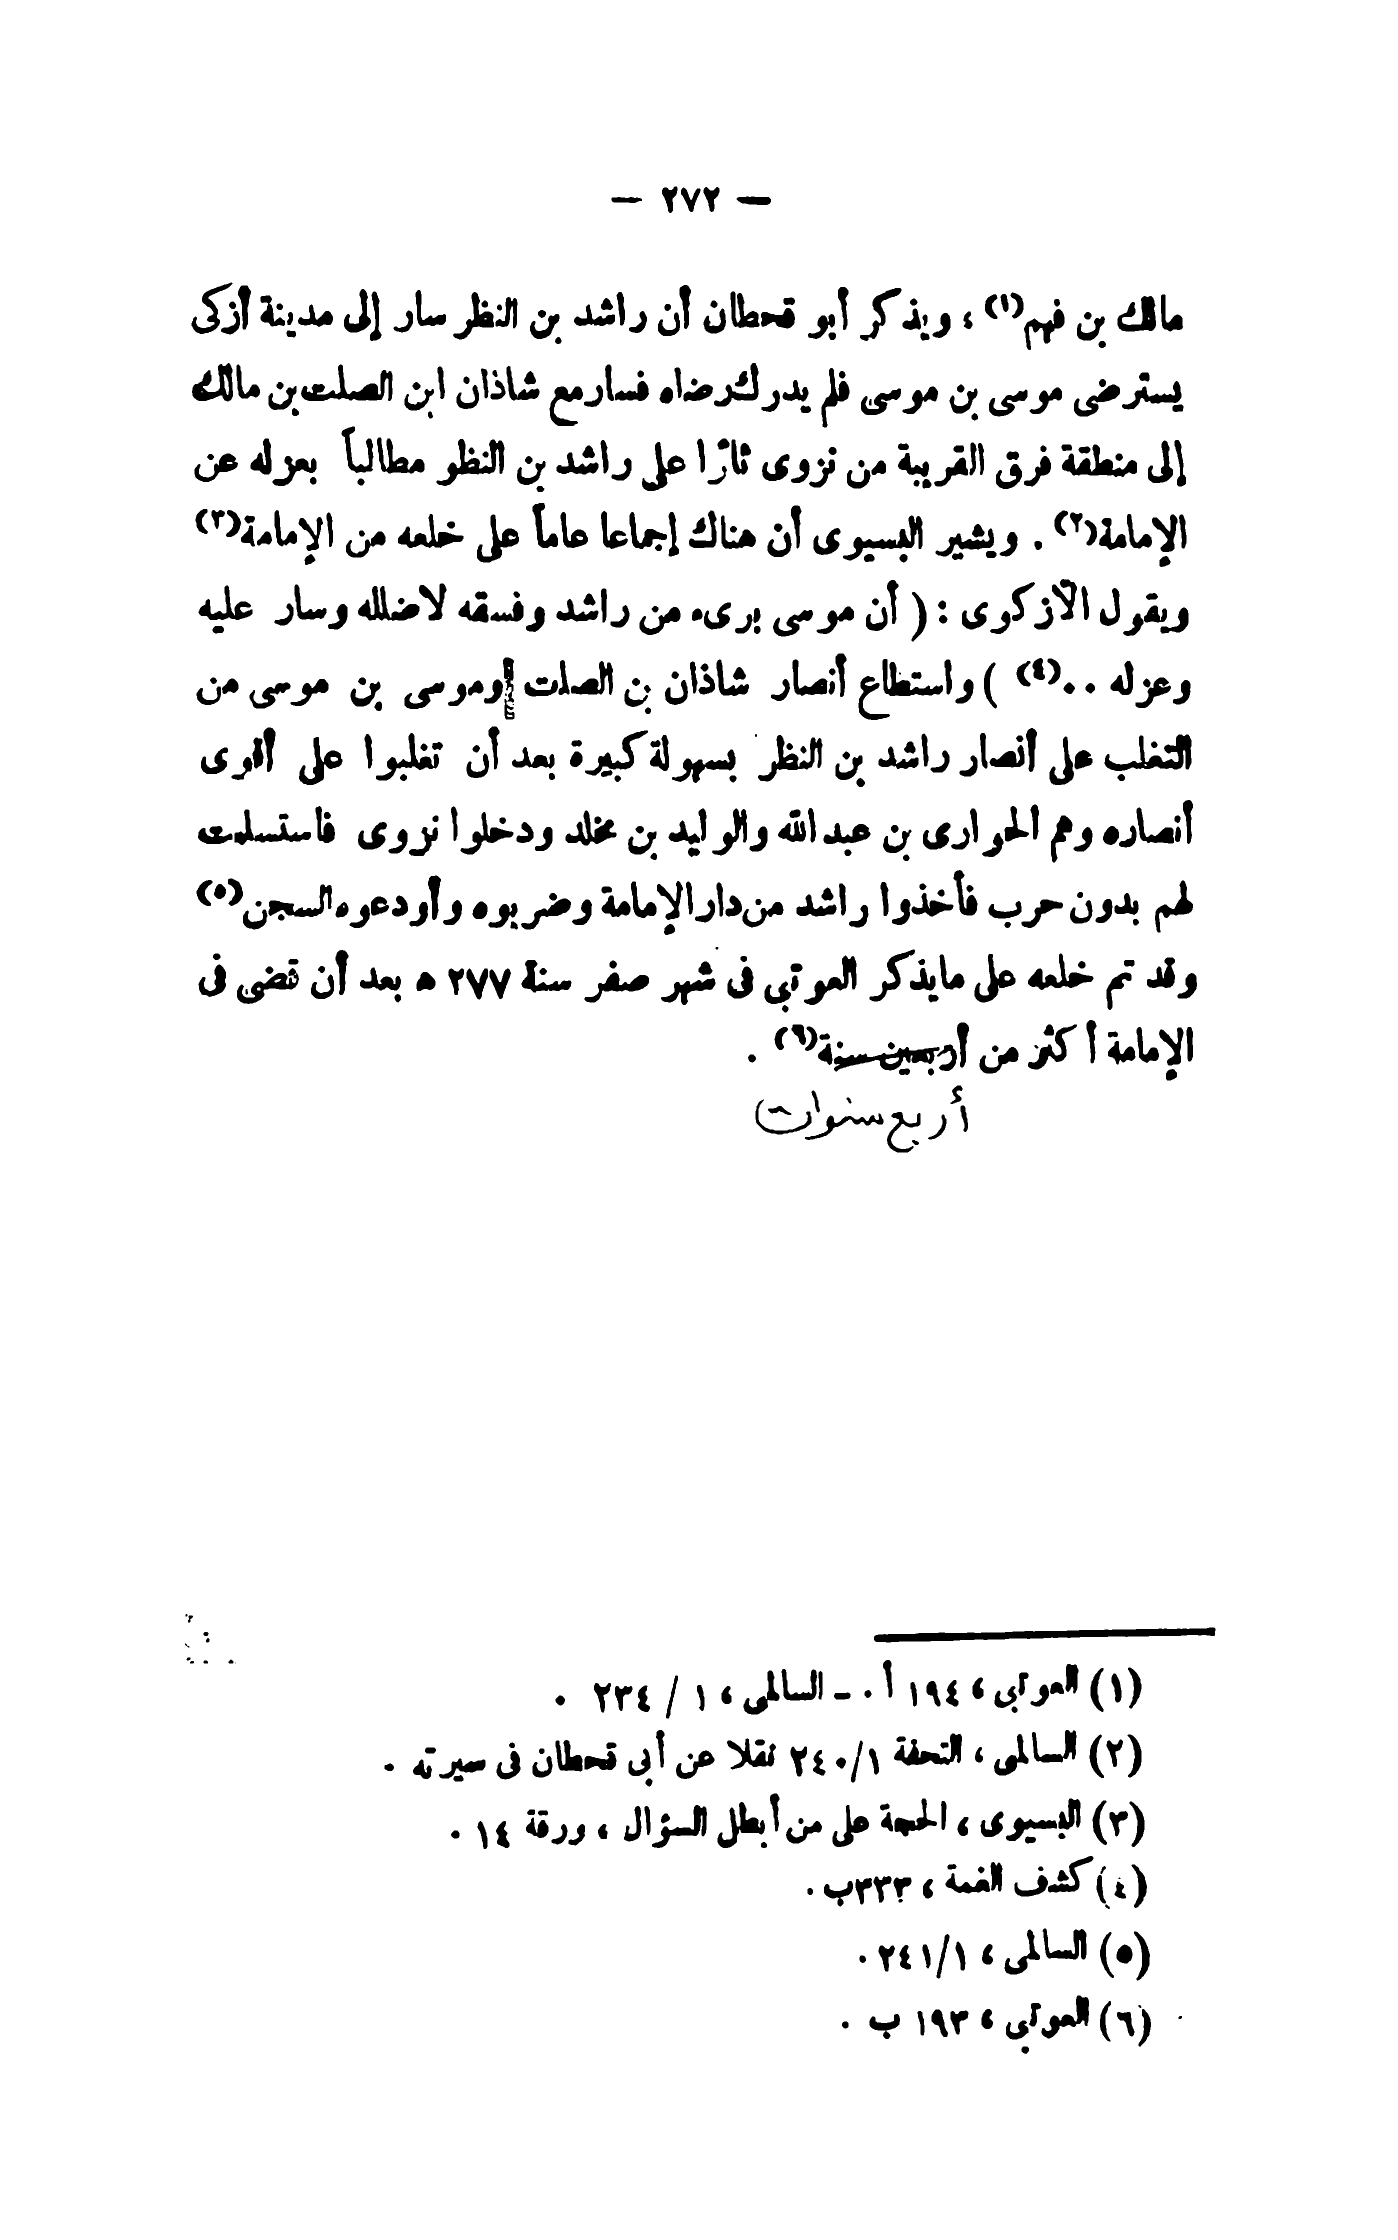 — ٢٧٢ —
مالك بن فهم(١) ، ويذكر أبو قحطان أن راشد بن النظر سار إلى مدينة أزكى
يسترضى موسى بن موسى فلم يدرك رضاه فسار مع شاذان ابن الصلت بن مالك
إلى منطقة فرق القريبة من نزوى ثائرا على راشد بن النظر مطالباً بعزله عن
الإمامة(٢) . ويشير البسيوى أن هناك إجماعا عاماً على خلعه من الإمامة(٣)
ويقول الأزكوى : ( أن موسى برىء من راشد وفسقه لاضلله وسار عليه
وعزله ..(٤) ) واستطاع أنصار شاذان بن الصلت وموسى بن موسى من
التغلب على أنصار راشد بن النظر بسهولة كبيرة بعد أن تغلبوا على أقوى
أنصاره وهم الحوارى بن عبد الله والوليد بن مخلد ودخلوا نزوى فاستسلمت
لهم بدون حرب فأخذوا راشد من دار الإمامة وضربوه وأودعوه السجن(٥)
وقد تم خلعه على مايذكر العوتبي فى شهر صفر سنة ٢٧٧ ه بعد أن قضى فى
الإمامة أكثر من أربعين سنة(٦) .
أربع سنوات
(١) العوتبي ، ١٩٤ أ . – السالمى ، ١ / ٢٣٤ .
(٢) السالمى ، التحفة ٢٤٠/١ نقلا عن أبى قحطان فى سيرته .
(٣) البسيوى ، الحجة على من أبطل السؤال ، ورقة ١٤ .
(٤) كشف الغمة ، ٣٣٣ب .
(٥) السالمى ، ٢٤١/١ .
(٦) العوتبي ، ١٩٣ ب .